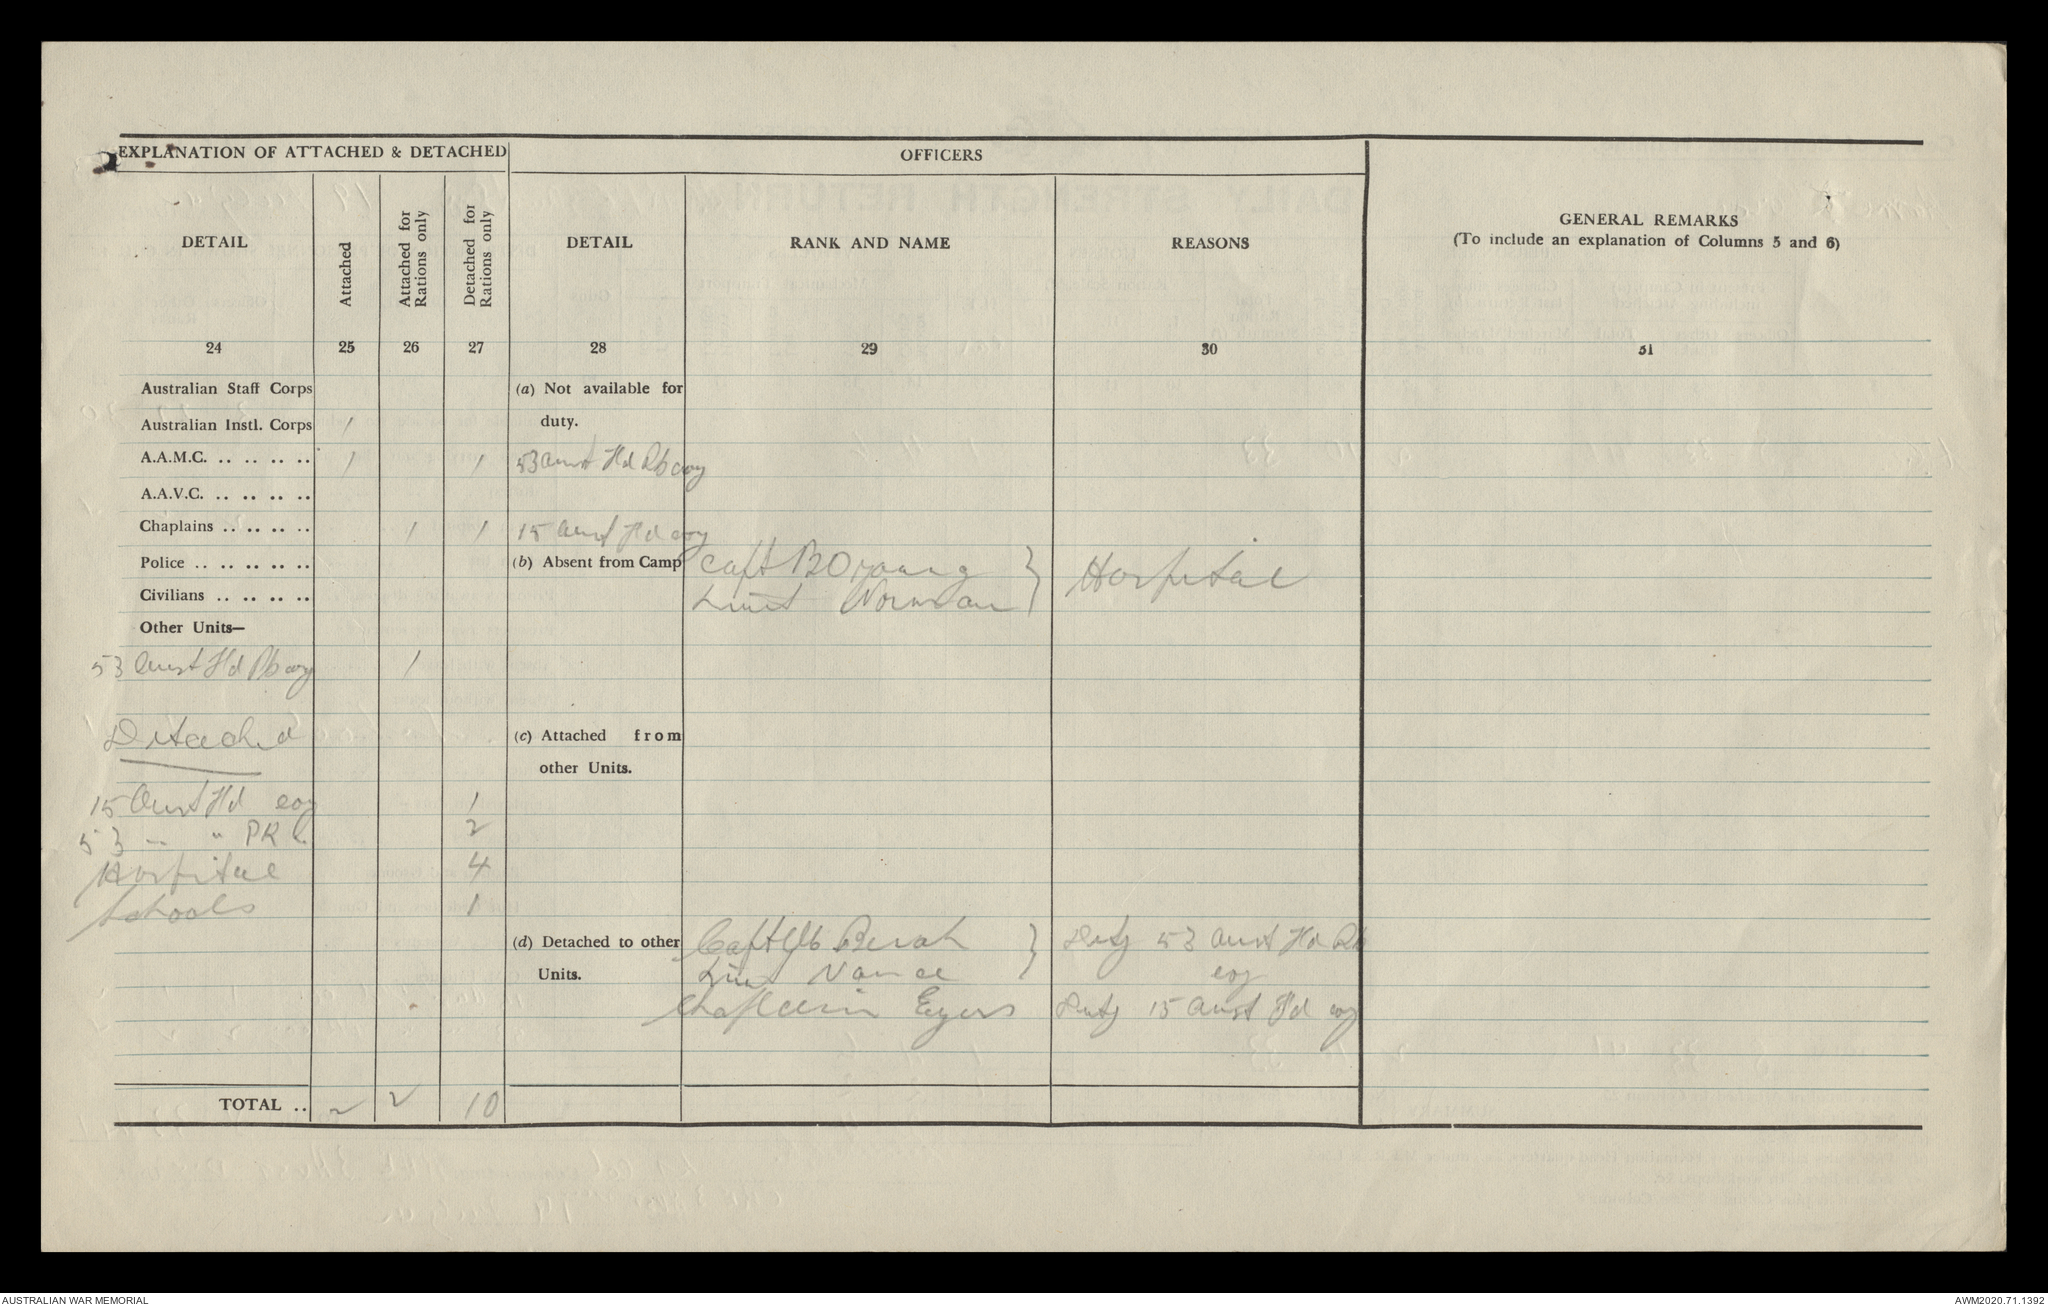 EXPLANATION OF ATTACHED & DETACHED
OFFICERS
GENERAL REMARKS
(To include an explanation of Columns 5 and 6)
DETAIL
Attached
Attached for Rations only
Detached for Rations only
DETAIL
RANK AND NAME
REASONS
24 25 26 27 28 29 30 31
Australian Staff Corps
(a) Not available for
Australian Instl. Corps 1
duty.
A.A.M.C. .. .. .. .. 1 1 53 Aust Fd coy
A.A.V.C. .. .. .. ..
Chaplains .. .. .. .. 1 1 15 Aust Fd coy
Police .. .. .. .. ..
(b) Absent from Camp Capt } Hospital
Civilians .. .. .. ..
Lieut Norman
Other Units—
53 Aust Fd coy 1
Detached
(c) Attached from
other Units.
15 Aust Fd coy 1
53 — " 2
Hospital 4
Schools 1
(d) Detached to other Capt } Duty 53 Aust Fd
Units. Lieut Vance coy
Chaplain Eyers Duty 15 Aust Fd coy
TOTAL .. 2 2 10
AUSTRALIAN WAR MEMORIAL
AWM2020.71.1392